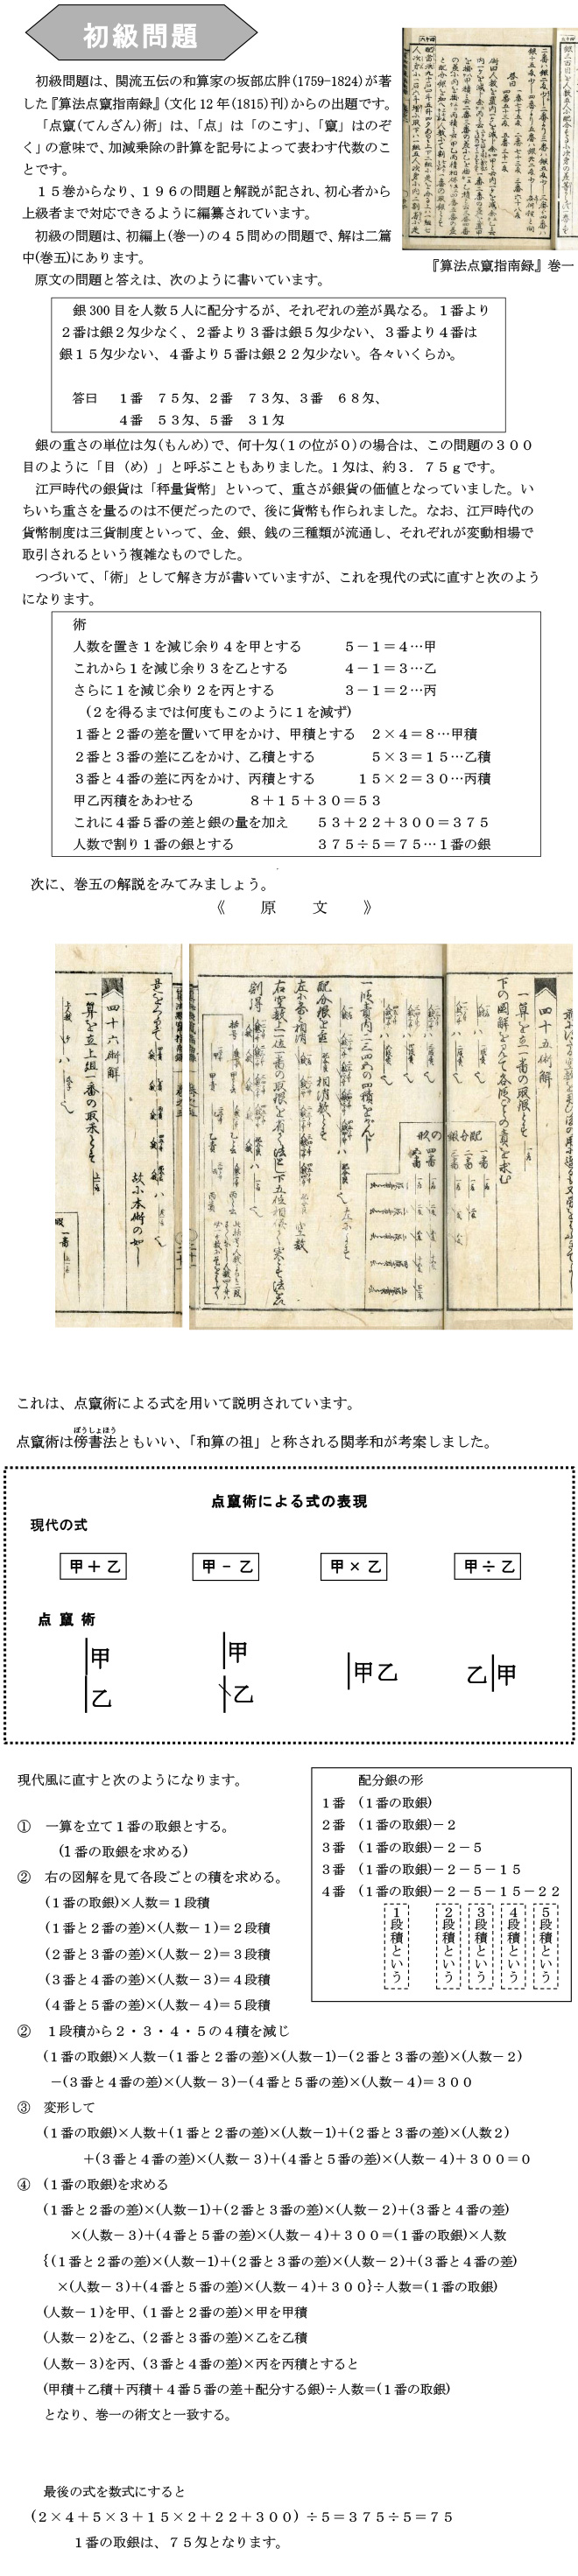 初級問題
初級問題は、関流五伝の和算家の坂部広胖(1759-1824)が著
した『算法点竄指南録』(文化12年(1815)刊)からの出題です。
「点竄(てんざん)術」は、「点」は「のこす」、「竄」はのぞ
く」の意味で、加減乗除の計算を記号によって表わす代数のこ
とです。
１５巻からなり、１９６の問題と解説が記され、初心者から
上級者まで対応できるように編纂されています。
初級の問題は、初編上(巻一)の４５問めの問題で、解は二篇
中(巻五)にあります。
原文の問題と答えは、次のように書いています。
『算法点竄指南録』巻一
銀300目を人数５人に配分するが、それぞれの差が異なる。１番より
２番は銀２匁少なく、２番より３番は銀５匁少ない、３番より４番は
銀１５匁少ない、４番より５番は銀２２匁少ない。各々いくらか。
答曰　１番　７５匁、２番　７３匁、３番　６８匁、
４番　５３匁、５番　３１匁
銀の重さの単位は匁(もんめ)で、何十匁(１の位が０)の場合は、この問題の３００
目のように「目（め）」と呼ぶこともありました。1匁は、約３．７５ｇです。
江戸時代の銀貨は「秤量貨幣」といって、重さが銀貨の価値となっていました。い
ちいち重さを量るのは不便だったので、後に貨幣も作られました。なお、江戸時代の
貨幣制度は三貨制度といって、金、銀、銭の三種類が流通し、それぞれが変動相場で
取引されるという複雑なものでした。
つづいて、「術」として解き方が書いていますが、これを現代の式に直すと次のよう
になります。
術
人数を置き１を減じ余り４を甲とする　　　５－１＝４…甲
これから１を減じ余り３を乙とする　　　　４－１＝３…乙
さらに１を減じ余り２を丙とする　　　　　３－１＝２…丙
(２を得るまでは何度もこのように１を減ず)
１番と２番の差を置いて甲をかけ、甲積とする　２×４＝８…甲積
２番と３番の差に乙をかけ、乙積とする　　　　５×３＝１５…乙積
３番と４番の差に丙をかけ、丙積とする　　　１５×２＝３０…丙積
甲乙丙積をあわせる　　　　８＋１５＋３０＝５３
これに４番５番の差と銀の量を加え　　５３＋２２＋３００＝３７５
人数で割り１番の銀とする　　　　　　３７５÷５＝７５…１番の銀
次に、巻五の解説をみてみましょう。
《　原　文　》
四十五術解
四十六術解
これは、点竄術による式を用いて説明されています。
ぼうしょほう
点竄術は傍書法ともいい、「和算の祖」と称される関孝和が考案しました。
点竄術による式の表現
現代の式
甲＋乙　甲－乙　甲×乙　甲÷乙
点竄術
甲　甲　甲乙　乙甲
乙　乙
現代風に直すと次のようになります。
①　一算を立て１番の取銀とする。
(１番の取銀を求める)
②　右の図解を見て各段ごとの積を求める。
(１番の取銀)×人数＝１段積
(１番と２番の差)×(人数－１)＝２段積
(２番と３番の差)×(人数－２)＝３段積
(３番と４番の差)×(人数－３)＝４段積
(４番と５番の差)×(人数－４)＝５段積
配分銀の形
１番　(１番の取銀)
２番　(１番の取銀)－２
３番　(１番の取銀)－２－５
３番　(１番の取銀)－２－５－１５
４番　(１番の取銀)－２－５－１５－２２
１段積という
２段積という
３段積という
４段積という
５段積という
②　１段積から２・３・４・５の４積を減じ
(１番の取銀)×人数－(１番と２番の差)×(人数－1)－(２番と３番の差)×(人数－２)
－(３番と４番の差)×(人数－３)－(４番と５番の差)×(人数－４)＝３００
③　変形して
(１番の取銀)×人数＋(１番と２番の差)×(人数－1)＋(２番と３番の差)×(人数２)
＋(３番と４番の差)×(人数－３)＋(４番と５番の差)×(人数－４)＋３００＝０
④　(１番の取銀)を求める
(１番と２番の差)×(人数－1)＋(２番と３番の差)×(人数－２)＋(３番と４番の差)
×(人数－３)＋(４番と５番の差)×(人数－４)＋３００＝(１番の取銀)×人数
{(１番と２番の差)×(人数－1)＋(２番と３番の差)×(人数－２)＋(３番と４番の差)
×(人数－３)＋(４番と５番の差)×(人数－４)＋３００}÷人数＝(１番の取銀)
(人数－１)を甲、(１番と２番の差)×甲を甲積
(人数－２)を乙、(２番と３番の差)×乙を乙積
(人数－３)を丙、(３番と４番の差)×丙を丙積とすると
(甲積＋乙積＋丙積＋４番５番の差＋配分する銀)÷人数＝(１番の取銀)
となり、巻一の術文と一致する。
最後の式を数式にすると
(２×４＋５×３＋１５×２＋２２＋３００）÷５＝３７５÷５＝７５
１番の取銀は、７５匁となります。